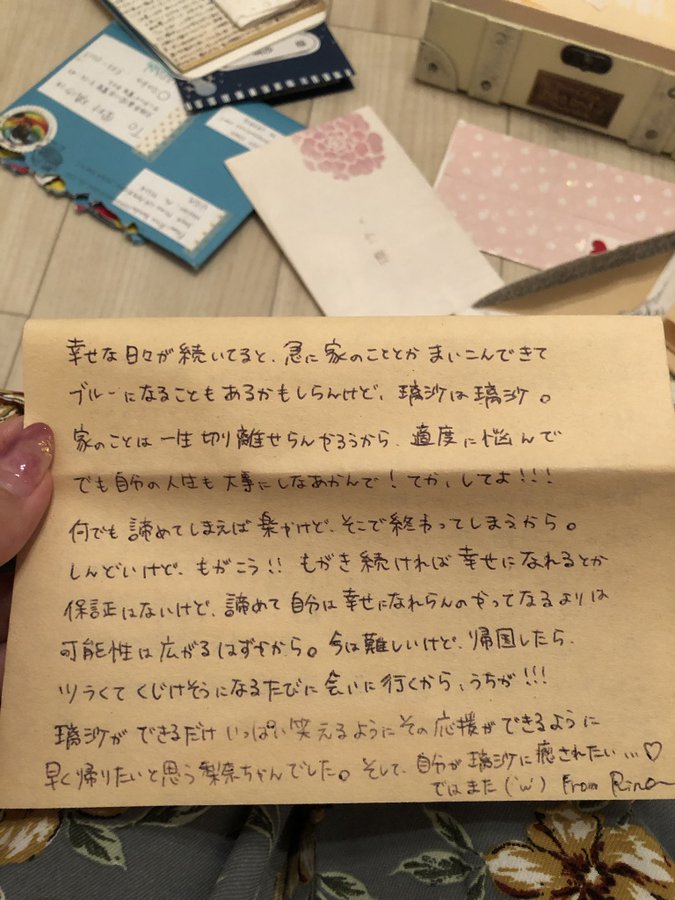 幸せな日々が続いてると、急に家のこととかまいこんできて
ブルーになることもあるかもしらんけど、璃沙は璃沙。
家のことは一生切り離せらんやろうから、適度に悩んで
でも自分の人生も大事にしなあかんで！てか、してよ！！！
何でも諦めてしまえば楽やけど、そこで終わってしまうから。
しんどいけど、もがこう！！もがき続ければ幸せになれるとか
保証はないけど、諦めて自分は幸せになれらんのやってなるよりは
可能性は広がるはずやから。今は難しいけど、帰国したら、
ツラくてくじけそうになるたびに会いに行くから、うちが！！！
璃沙ができるだけいっぱい笑えるようにその応援ができるように
早く帰りたいと思う梨奈ちゃんでした。そして、自分が璃沙に癒されたい…♡
ではまた('ω') From Rina